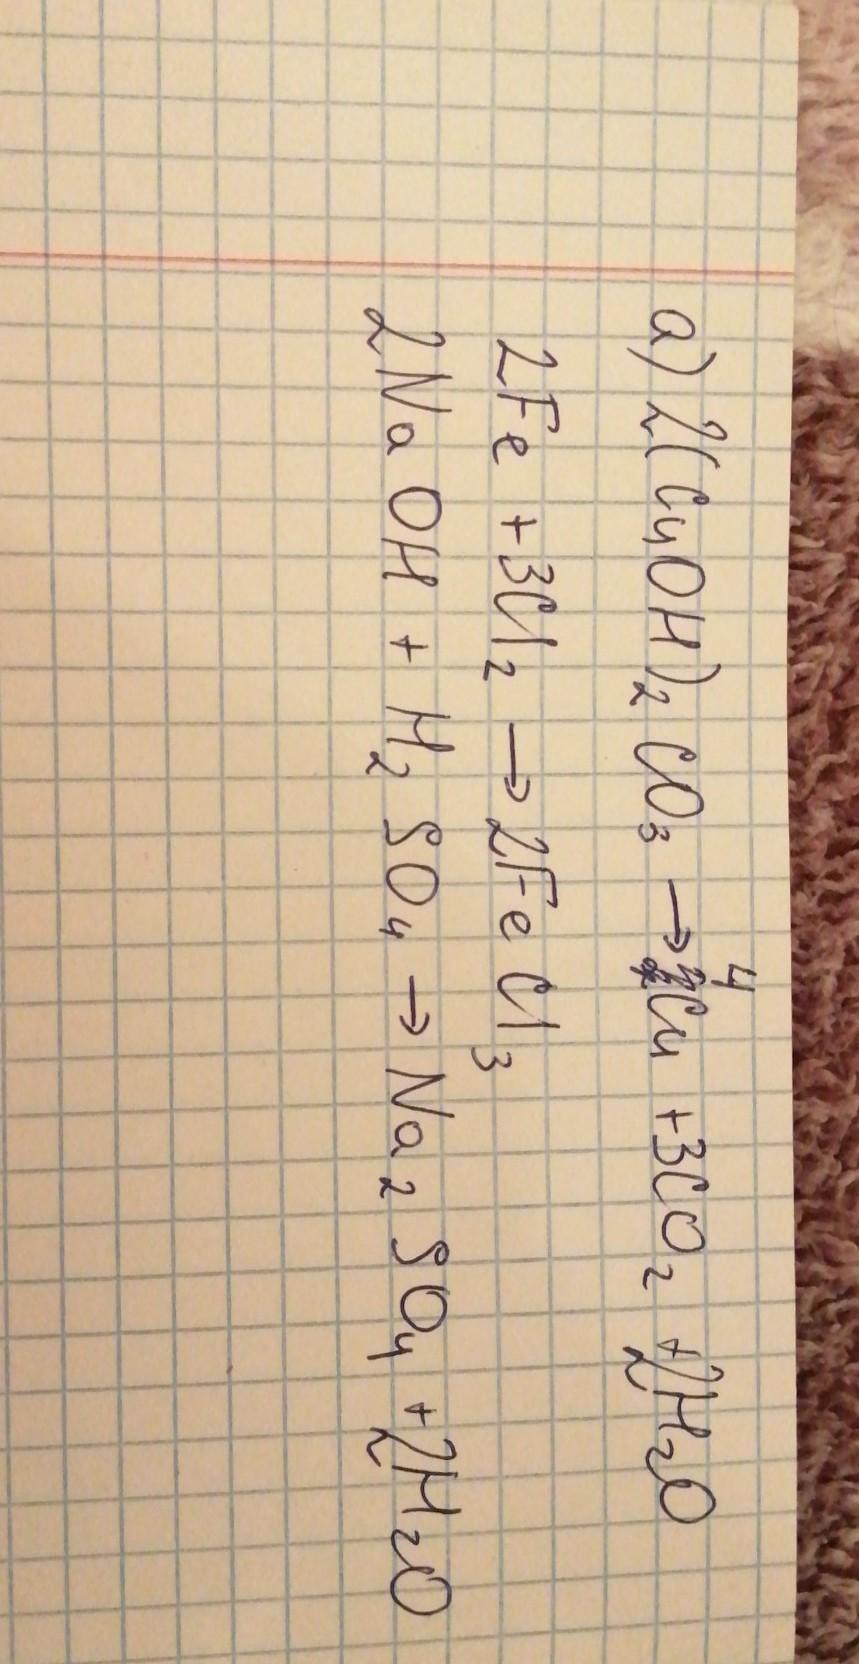 a) 2(CuOH)₂CO₃ → 4Cu + 3CO₂ + 2H₂O
2Fe + 3Cl₂ → 2FeCl₃
2NaOH + H₂SO₄ → Na₂SO₄ + 2H₂O